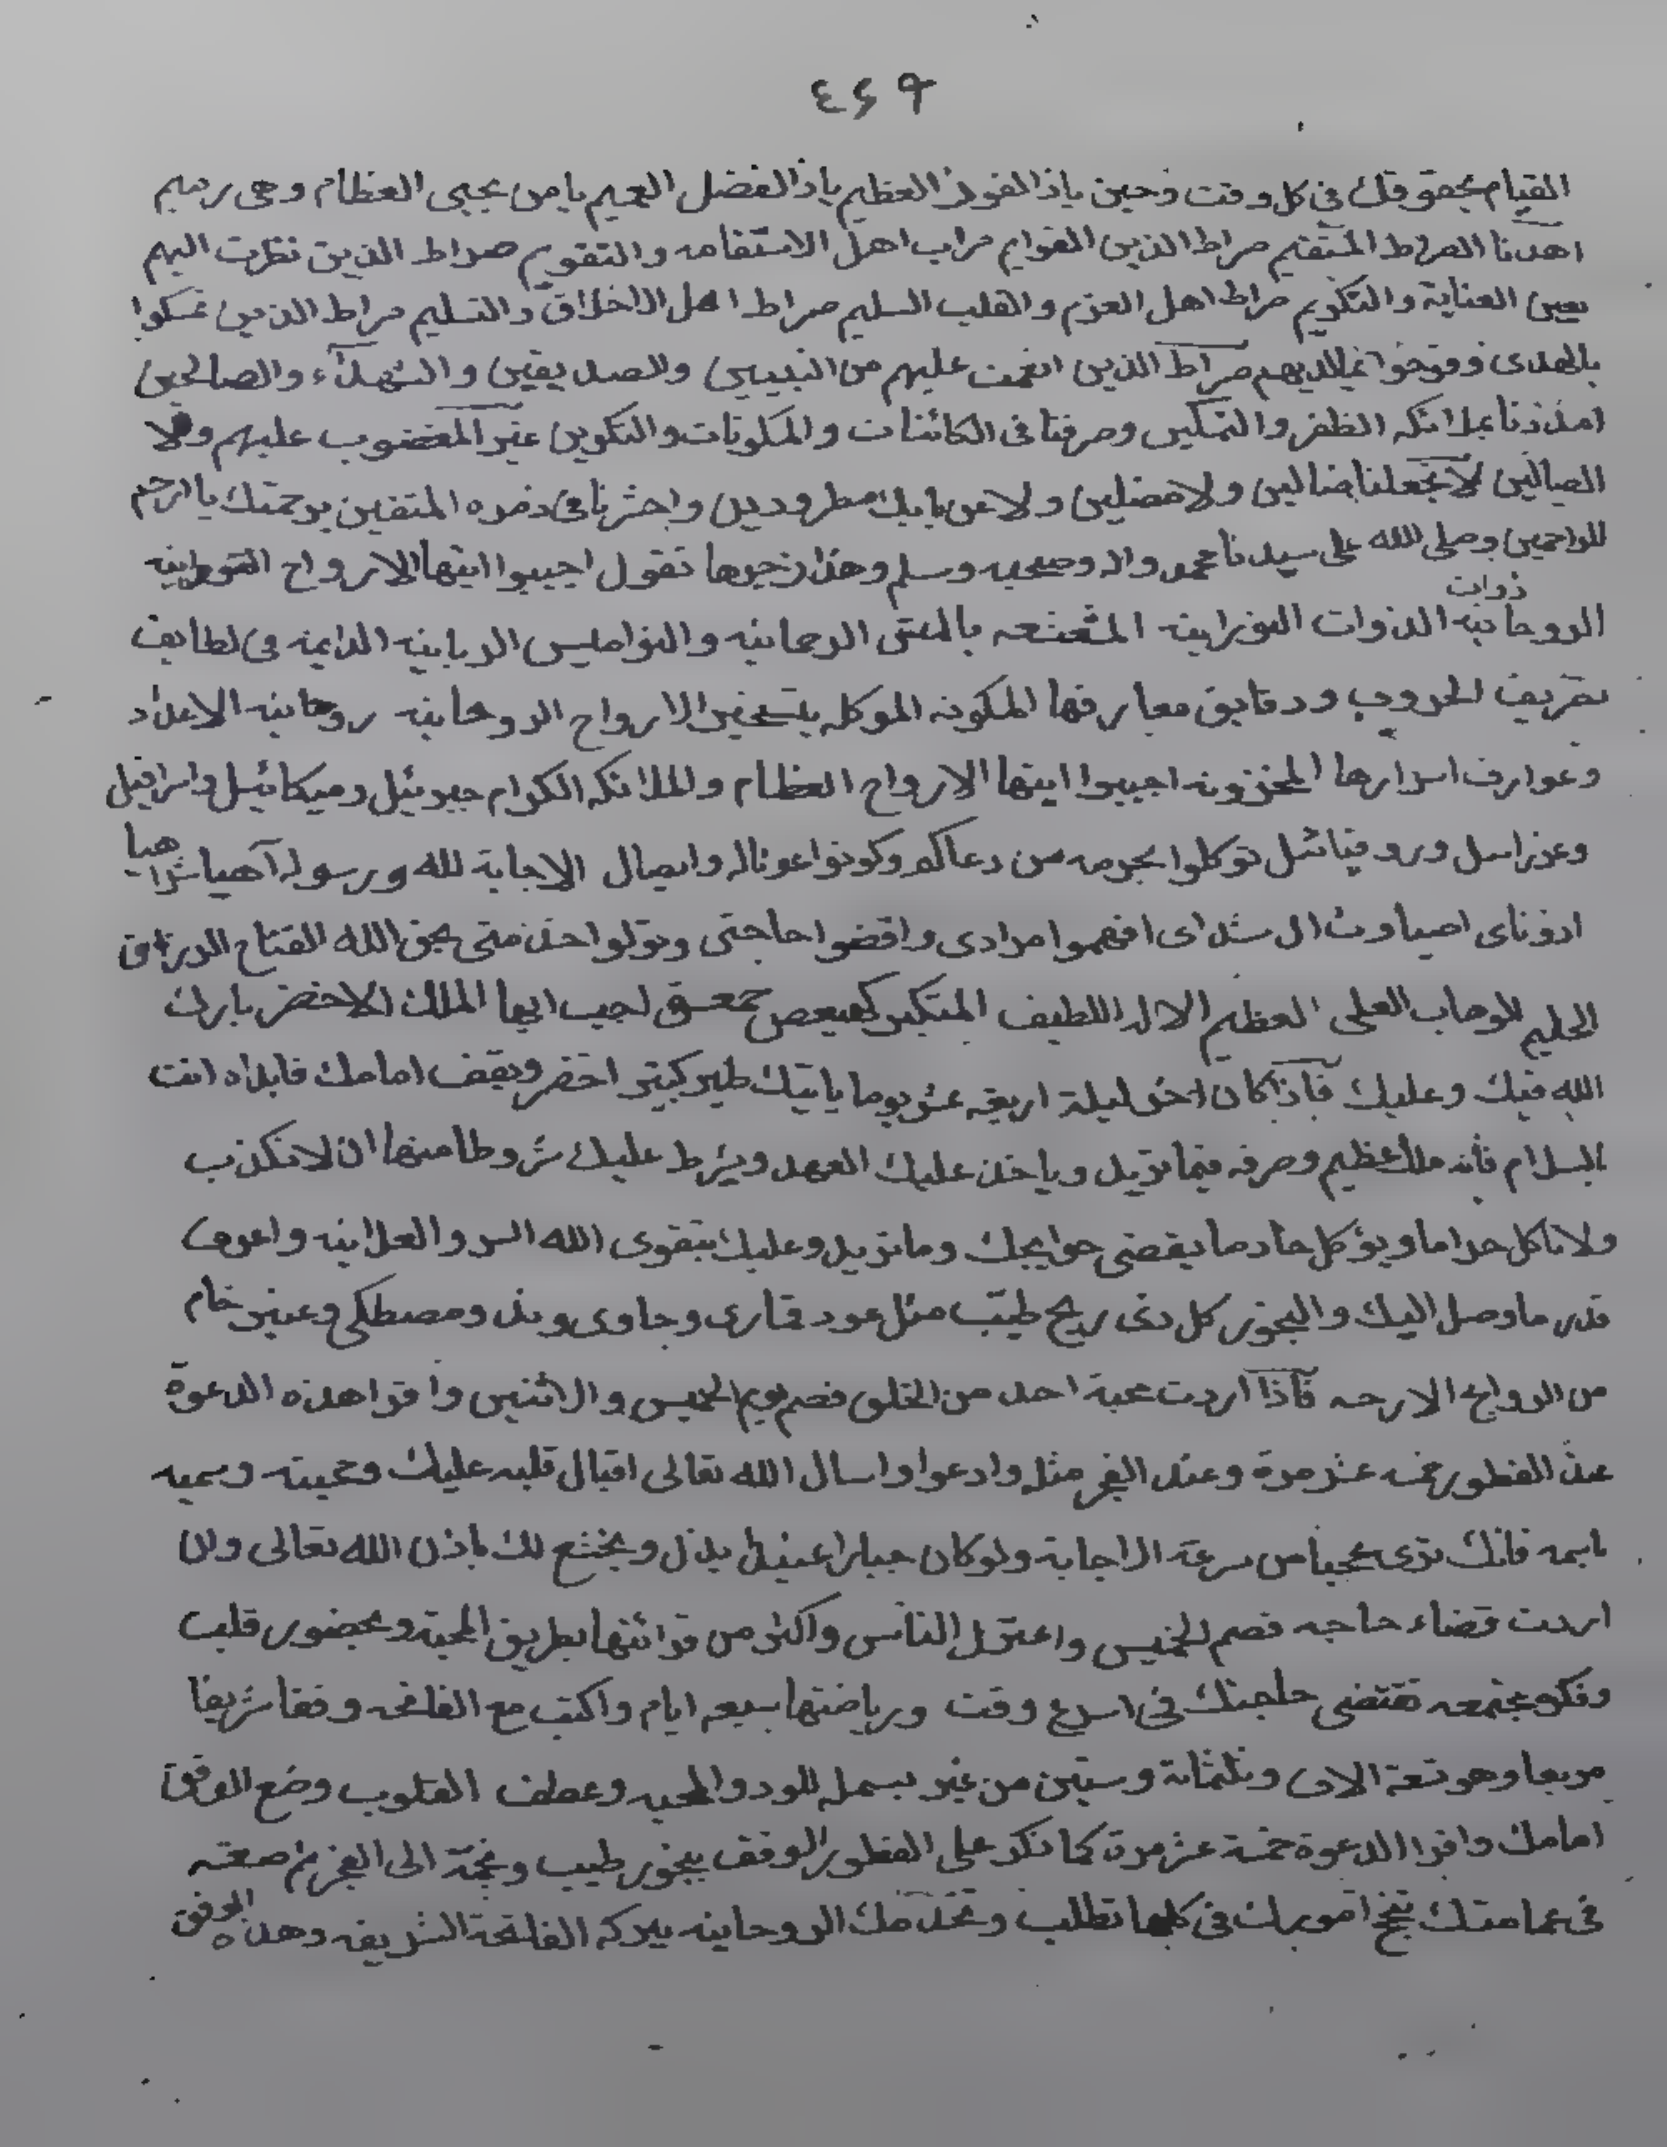 ٤٦٩
القيام بحقوقك فى كل وقت وحين ياذا الفوز العظيم ياذا الفضل العميم يا من يحيى العظام وهى رميم
اهدنا الصراط المستقيم صراط الذين اهل الاستقامه والتقويم صراط الذين نظرت اليهم
بعين العناية والتكريم صراط اهل العزم والقلب السليم صراط اهل الاخلاق والتسليم صراط الذين تمسكوا
بالهدى وفوضوا صراط الذين انعمت عليهم من النبيين والصديقين والشهدآء والصالحين
امددنا بملائكه الظفر والتمكين وصرفنا فى الكائنات والمكونات والتكوين غير المغضوب عليهم ولا
الضالين لا تجعلنا ضالين ولا مضلين ولا عن بابك مطرودين واحشرنا فى زمره المتقين برحمتك يا ارحم
الراحمين وصلى الله على سيدنا محمد واله وصحبه وسلم وهذا زجرها تقول اجيبوا ايتها الارواح
ذوات
الروحانيه الذوات النورانيه المشعشعه الرحمانيه والنواميس الربانيه الدايمه فى لطايف
تصريف الحروف ودقايق معارفها المكونه الموكله بتسخير الارواح الروحانيه روحانيه الاعداد
وعوارف اسرارها المخزونه اجيبوا ايتها الارواح العظام والملائكه الكرام جبرئيل وميكائيل واسرافيل
وعزرائيل وروقيائيل توكلوا بحرمه من دعاكم وكونوا عونا له وايصال الاجابة لله ورسوله آهيا شراهيا
ادوناى اصباوت ال شداى افهموا مرادى واقضوا حاجتى وتولوا خدمتى بحق الله الفتاح الرزاق
الحليم الوهاب العلى العظيم الاله اللطيف المتكبر كهيعص حمعسق اجيب ايها الملك الاخضر بارك
الله فيك وعليك فآذا كان اخر ليلة اربعة عشر يوما ياتيك طير كبير اخضر ويقف امامك فابداه انت
بالسلام فانه ملك عظيم وصرفه فيما تريد وياخذ عليك العهد ويشرط عليك شروطا منها ان لا تكذب
ولا تاكل حراما ويؤكل خادما يقضى حوايجك وما تريد وعليك بتقوى الله السر والعلانيه واعرف
قدر ما وصل اليك والبخور كل ذى ريح طيب مثل عود قمارى وجاوى وند ومصطكى وعنبر خام
من الروايح الارحه فآذا اردت محبة احد من الخلق فصم يوم الخميس والاثنين واقرا هذه الدعوة
عند الفطور خمسه عشر مرة وعند الفجر مثله وادعوا واسال الله تعالى اقبال قلبه عليك ومحبته وسميه
باسمه فانك ترى عجبا من سرعة الاجابة ولو كان جبارا عنيدا يذل ويخشع لك باذن الله تعالى وان
اردت قضاء حاجه فصم الخميس واعتزل الناس واكثر من قرائتها بطريق المحبة وبحضور قلب
وفكر مجتمعه تقتضى حاجتك فى اسرع وقت ورياضتها سبعه ايام واكتب مع الفاتحه وفقا شريفا
مربعا وهو تسعة الاف وثلثمائة وستين من غير بسمله للود والمحبه وعطف القلوب وضع الوفق
امامك واقرا الدعوة خمسة عشر مرة كما نذكر على الفطور الوفق ببخور طيب الى الفجر ثم ضعه
فى عمامتك تنجح امورك فى كلها تطلب وتخدمك الروحانيه ببركه الفاتحة الشريفه وهذا الوفق